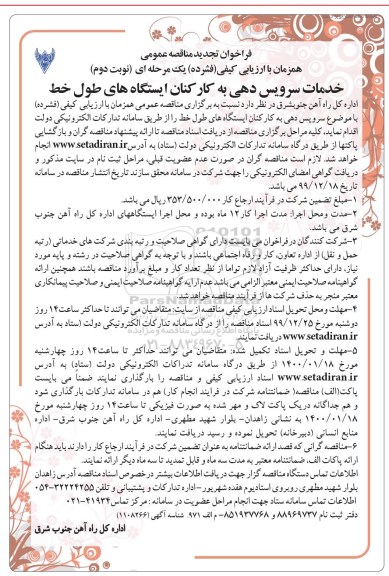 فراخوان تجدید مناقصه عمومی
همزمان با ارزیابی کیفی (فشرده) یک مرحله ای (نوبت دوم)
خدمات سرویس دهی به کارکنان ایستگاه های طول خط
اداره کل راه آهن جنوبشرق در نظر دارد نسبت به برگزاری مناقصه عمومی همزمان با ارزیابی کیفی (فشرده)
با موضوع سرویس دهی به کارکنان ایستگاه های طول خط را از طریق سامانه تدارکات الکترونیکی دولت
اقدام نماید. کلیه مراحل برگزاری مناقصه از دریافت اسناد مناقصه تا ارائه پیشنهاد مناقصه گران و بازگشایی
پاکتها از طریق درگاه سامانه تدارکات الکترونیکی دولت (ستاد) به آدرس www.setadiran.ir انجام
خواهد شد. لازم است مناقصه گران در صورت عدم عضویت قبلی، مراحل ثبت نام در سایت مذکور و
دریافت گواهی امضای الکترونیکی را جهت شرکت در سامانه محقق سازند تاریخ انتشار مناقصه در سامانه
تاریخ ۹۹/۱۲/۱۸ می باشد.
۱-مبلغ تضمین شرکت در فرآیند ارجاع کار ۳۵۳/۵۰۰/۰۰۰ ریال می باشد.
۲-مدت و محل اجرا: مدت اجرا کار ۱۲ ماه بوده و محل اجرا ایستگاههای اداره کل راه آهن جنوب
شرق می باشد.
۳-شرکت کنندگان در فراخوان می بایست دارای گواهی صلاحیت و رتبه بندی شرکت های خدماتی (رتبه
حمل و نقل از اداره تعاون، کار و رفاه اجتماعی باشند و با توجه به گواهی صلاحیت در رشته و پایه مورد
نیاز، دارای حداکثر ظرفیت آزاد لازم تواما از نظر تعداد کار و مبلغ برآورد مناقصه باشند همچنین ارائه
گواهینامه صلاحیت ایمنی معتبر الزامی می باشد عدم ارایه گواهینامه صلاحیت ایمنی و صلاحیت پیمانکاری
معتبر منجر به حذف شرکت ها از فرآیند مناقصه خواهد شد.
۴-مهلت و محل تحویل اسناد ارزیابی کیفی مناقصه از سایت: متقاضیان می توانند تا حداکثر ساعت ۱۴ روز
دوشنبه مورخ ۹۹/۱۲/۲۵ اسناد مناقصه را از درگاه سامانه تدارکات الکترونیکی دولت (ستاد) به آدرس
www.setadiran.ir دریافت نمایند.
۵-مهلت و تحویل اسناد تکمیل شده: متقاضیان می توانند حداکثر تا ساعت ۱۴ روز چهارشنبه
مورخ ۱۴۰۰/۰۱/۱۸ از طریق درگاه سامانه تدارکات الکترونیکی دولت (ستاد) به آدرس
www.setadiran.ir اسناد ارزیابی کیفی و مناقصه را بارگذاری نمایند ضمناً می بایست
پاکت (الف) مناقصه (ضمانتنامه شرکت در فرایند انجام کار) هم در سامانه تدارکات بارگذاری شود
و هم جداگانه دریک پاکت لاک و مهر شده به صورت فیزیکی تا ساعت ۱۴ روز چهارشنبه مورخ
۱۴۰۰/۰۱/۱۸ به نشانی زاهدان- بلوار شهید مطهری- اداره کل راه آهن جنوب شرق- اداره
منابع انسانی (دبیرخانه) تحویل نموده و رسید دریافت نمایند.
۶-مناقصه گرانی که قصد ارائه ضمانتنامه به عنوان تضمین شرکت در فرآیند ارجاع کار را دارند باید هنگام
ارائه پاکات الف، ضمانتنامه معتبر به مدت سه ماه و قابل تمدید تا سه ماه دیگر ارائه نمایند.
اطلاعات تماس دستگاه مناقصه گزار جهت دریافت اطلاعات بیشتر در خصوص اسناد مناقصه آدرس زاهدان
بلوار شهید مطهری روبروی استادیوم هفده شهریور- اداره تدارکات و پشتیبانی و تلفن ۳۲۲۲۴۲۵۵-۰۵۴
اطلاعات تماس سامانه ستاد جهت انجام مراحل عضویت در سامانه: مرکز تماس ۴۱۹۳۴-۰۲۱
دفتر ثبت نام ۸۸۹۶۹۷۳۷ و ۸۵۱۹۳۷۷۶۸- م الف ۹۷۱ شناسه آگهی (۱۱۰۸۲۶۶)
اداره کل راه آهن جنوب شرق